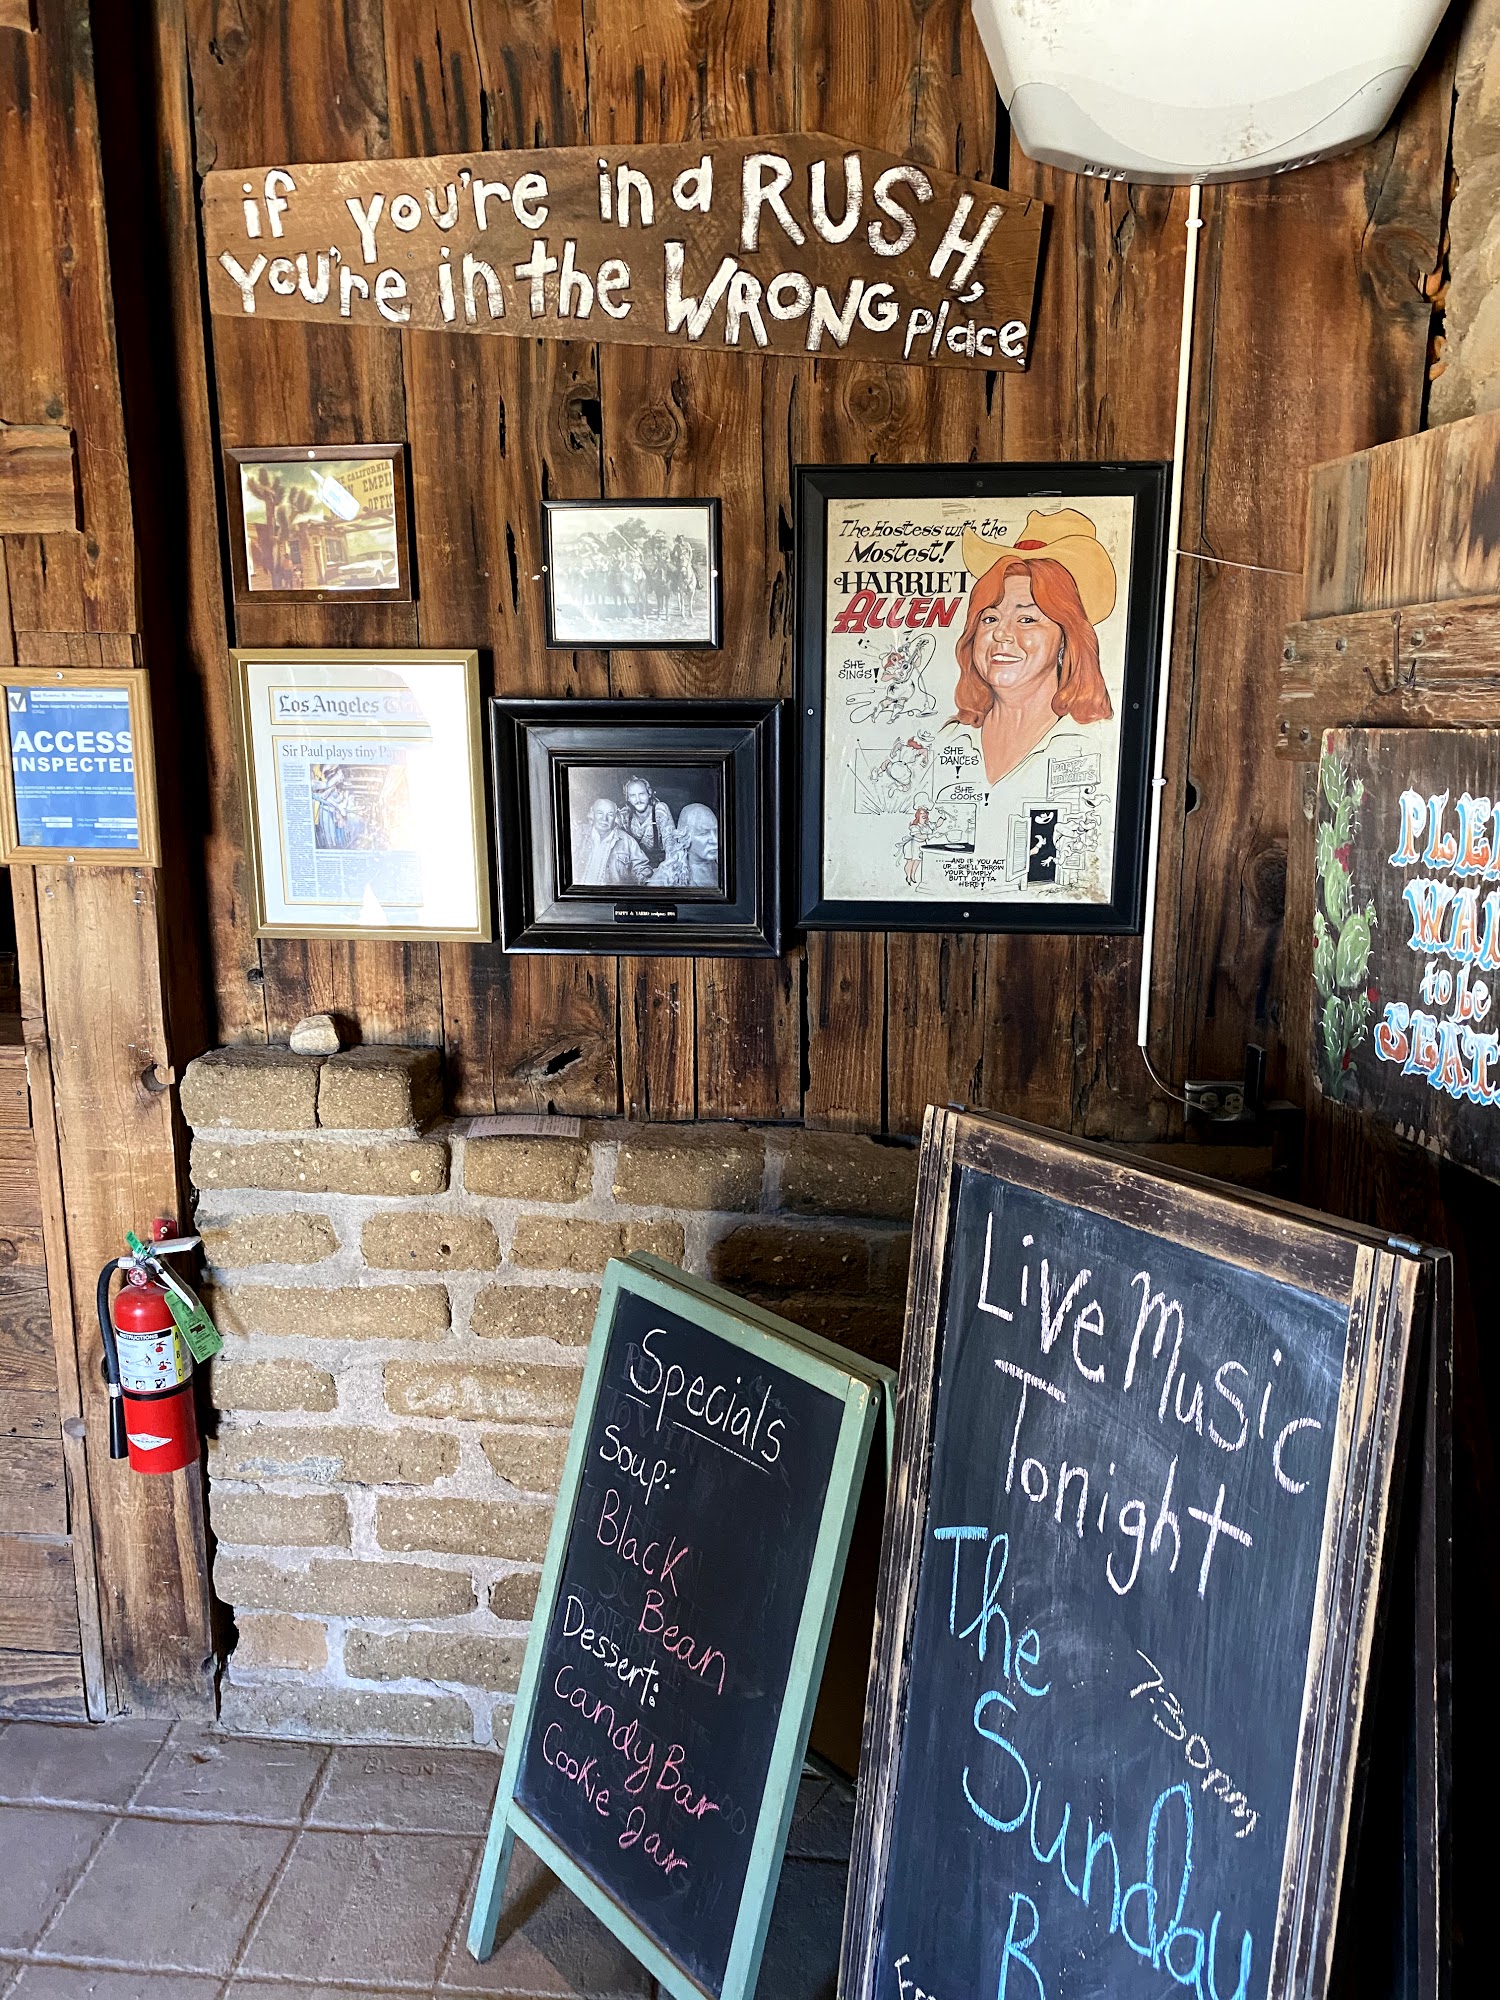 if you're in a RUSH,
you're in the WRONG place
CALIFORNIA
EMPI
OFFIC
The Hostess with the
Mostest!
HARRIET
ALLEN
SHE
SINGS!
SHE
DANCES
!
SHE
COOKS!
PAPPY
HARRIET'S
...AND IF YOU ACT
UP, SHE'LL THROW
YOUR PIMPLY
BUTT OUTTA
HERE!
Los Angeles
Sir Paul plays tiny
ACCESS
INSPECTED
PLE
WA
to be
SEAT
INSTRUCTIONS
A
B
C
Specials
Soup:
Black
Bean
Dessert:
Candy Bar
Cookie Jar
Live Music
Tonight
7:30pm
The
Sunday